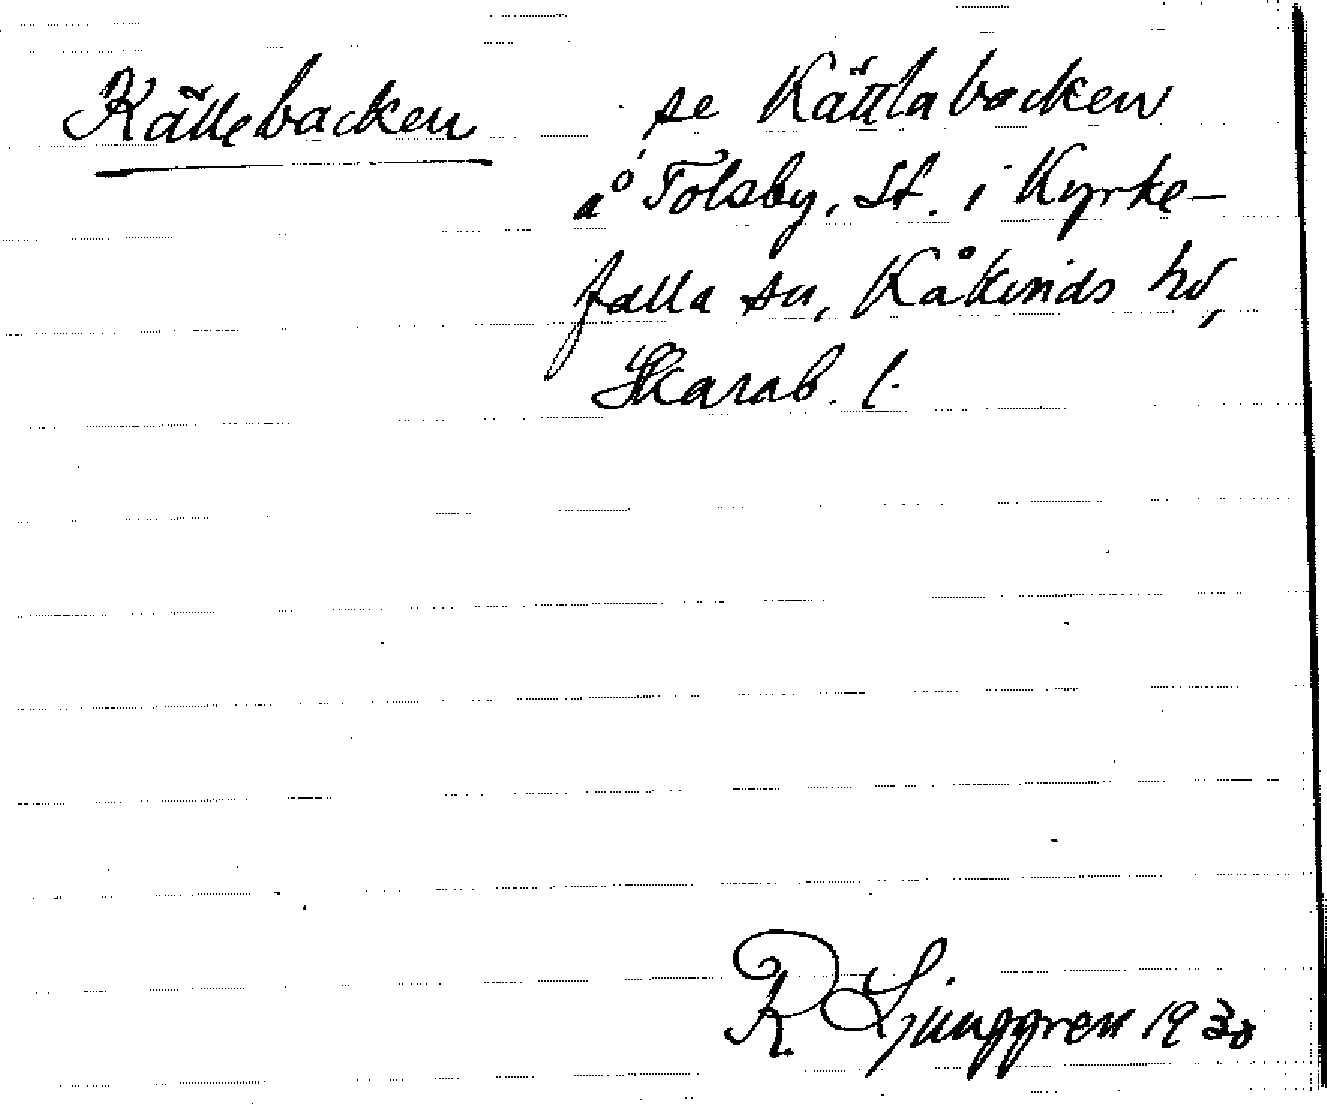 Källebacken se Kättlabacken
å Tolsby, St. i Kyrke-
falla sn, Kåkinds hd,
Skarab. l.
R. Ljunggren 1930